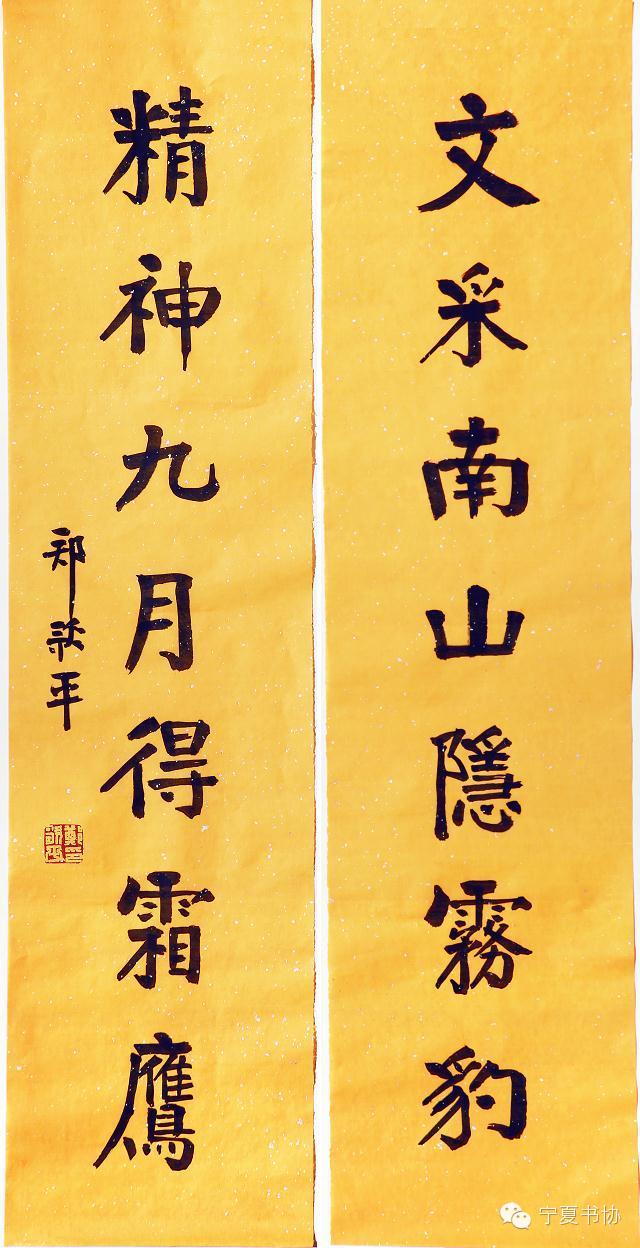 文采南山隱霧豹
精神九月得霜鷹
郑平
宁夏书协